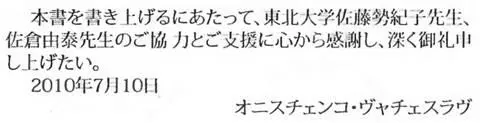 本書を書き上げるにあたって、東北大学佐藤勢紀子先生、
佐倉由泰先生のご協 力とご支援に心から感謝し、深く御礼申
し上げたい。
2010年7月10日
オニスチェンコ・ヴャチェスラヴ